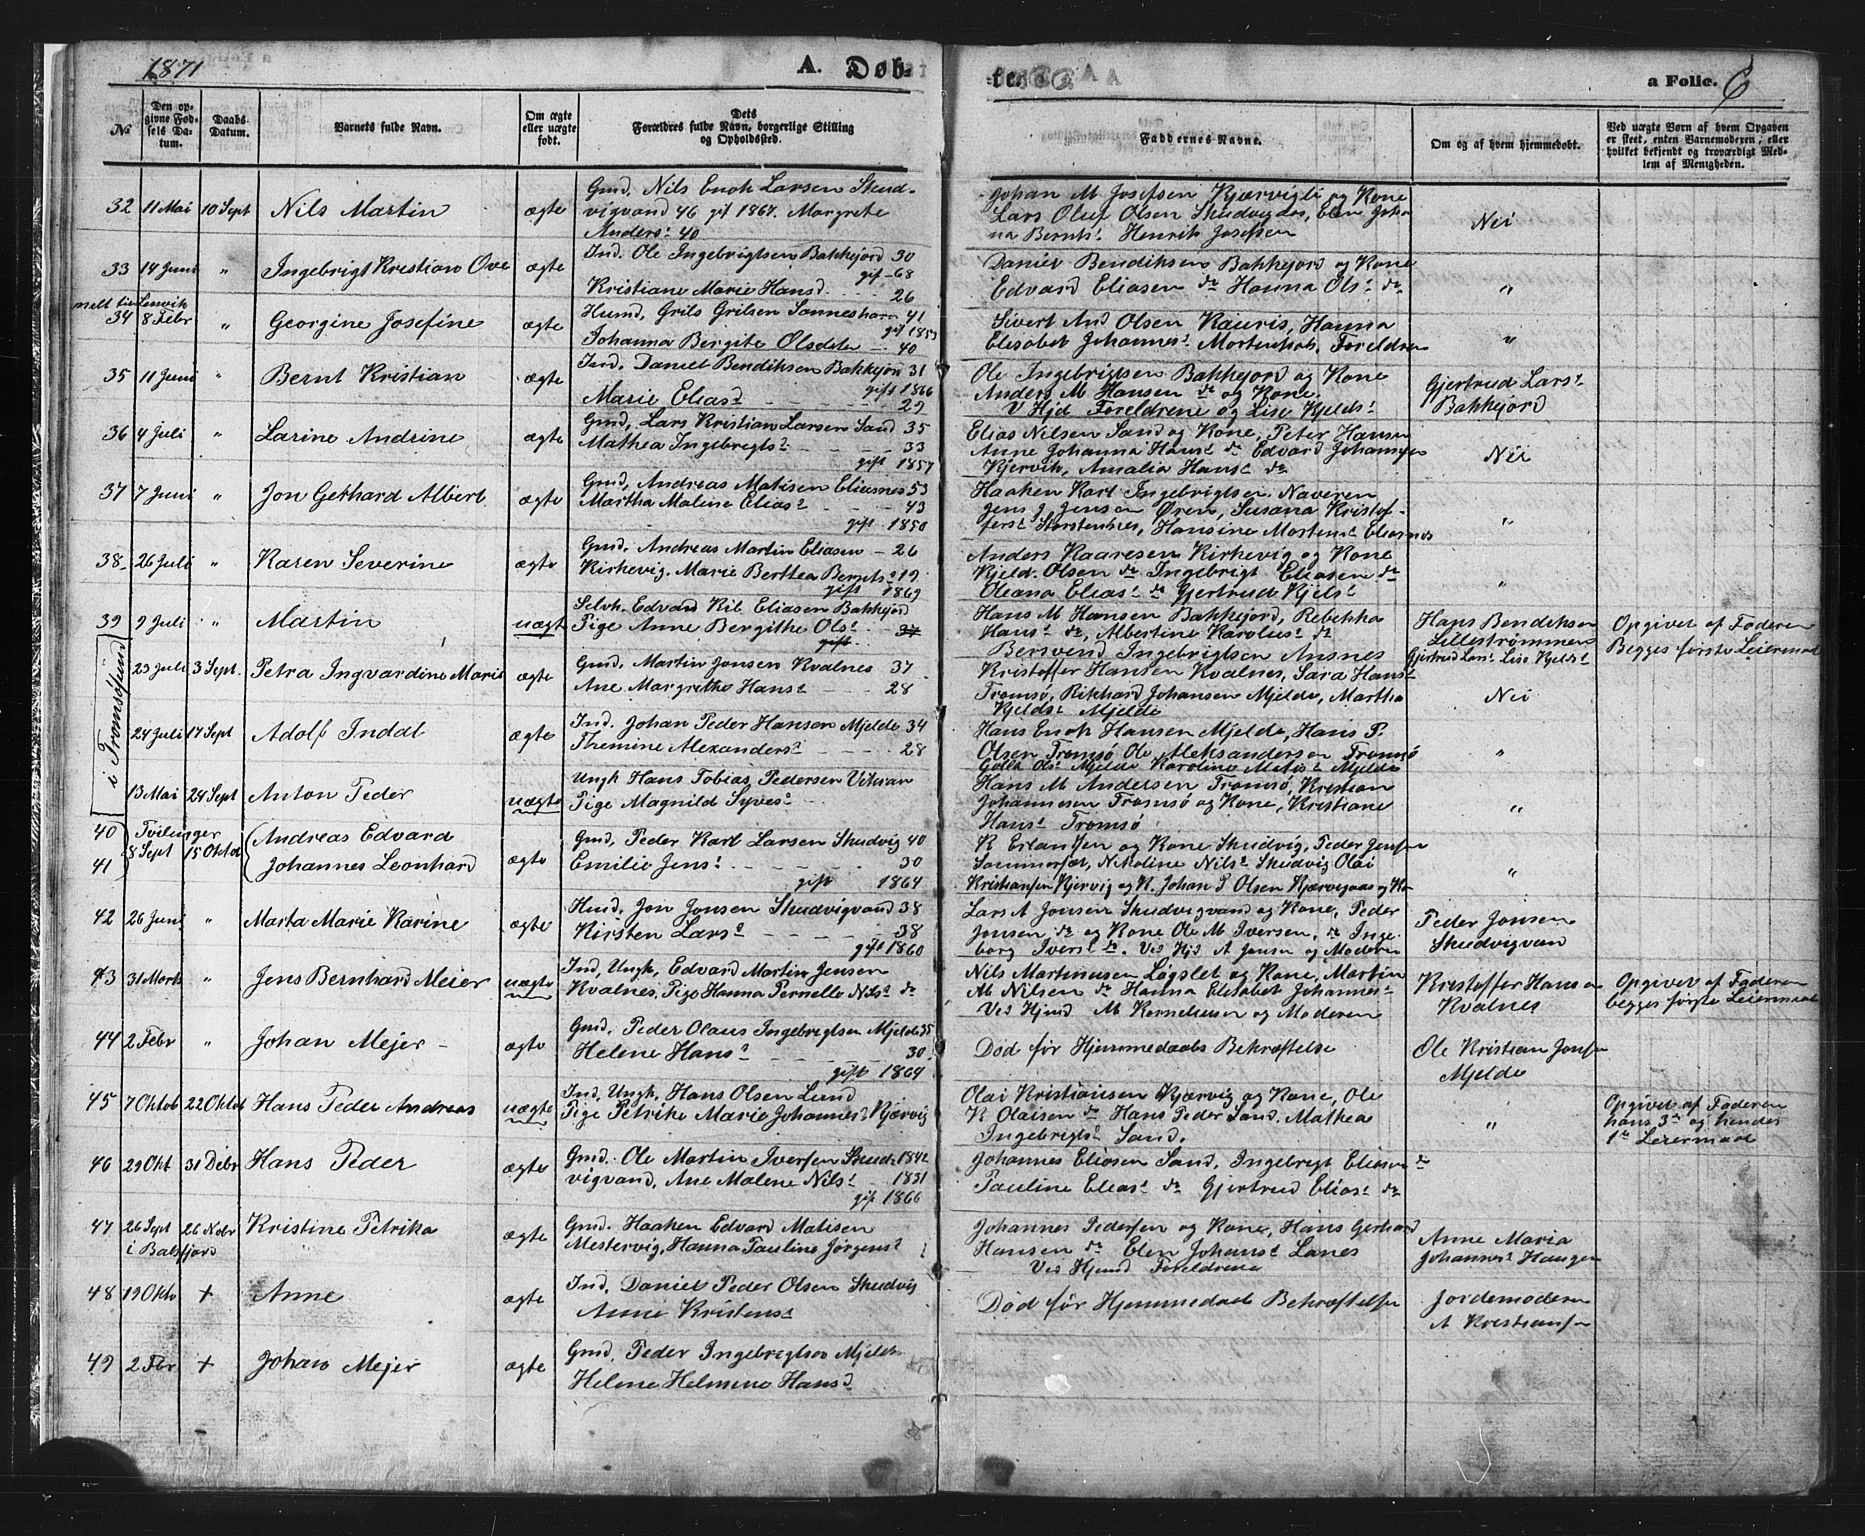 1871
A. Døb-
te.
a Folio. 6
No
Den op-
givne Fød-
sels Da-
tum.
Daabs-
Datum.
Varnets fulde Navn.
Om ægte
eller uægte
født.
Dets
Forældres fulde Navn, borgerlige Stilling
og Opholdssted.
Faddernes Navne.
Om og af hvem hjemmedøbt.
Ved uægte Børn af hvem Opgaven
er skeet, enten Barnemoderen, eller
hvilket bekjendt og troværdigt Med-
lem af Menigheden.
32 11 Mai 10 Sept Nils Martin ægte
Gmd. Nils Enok Larsen Skud-
vigvand 46 gif 1867. Margrete
Anders: 40
Johan M Josefsen Kjærvigli og Kone
Lars Oluf Olsen Skudvignes, Elen Joha
na Bernts: Henrik Josefsen
Nei
33 14 Juni " Ingebrigt Kristian Ove ægte
Ind. Ole Ingebrigtsen Bakkejord 30
gif 68
Kristiane Marie Hansd. 26
Daniel Bendiksen Bakkejord og Kone
Edvard Eliasen do Hanna Ols: do
"
meldt til Lenvik
34 8 Febr " Georgine Josefine ægte
Husmd, Grils Grilsen Sanneshavn 41
gif 1857
Johanna Bergite Olsdtr 40
Sivert And Olsen Rauris, Hanna
Elisabet Johannes: Mortenhals. Foreldren
"
35 11 Juni " Bernt Kristian ægte
Ind. Daniel Bendiksen Bakkejord 31
gift 1866
Marie Elias: 29
Ole Ingebrigtsen Bakkejord og Kone
Anders M Hansen do og Kone.
V Hjd Foreldrene og Lise Kjelds:
Gjertrud Lars:
Bakkejord
36 4 Juli " Larine Andrine ægte
Gmd, Lars Kristian Larsen Sand 35
Mathea Ingebrigts: 33
gift 1857
Elias Nilsen Sand og Kone, Peter Hansen
Anne Johanna Hans: do Edvard Johansen
Kjervik, Amalia Hans: do
Nei
37 7 Juni " Jon Gerhard Albert ægte
Gmd, Andreas Matisen Eliasnes 53
Martha Malene Elias: 43
gift 1850
Haaken Karl Ingebrigtsen Naveren
Jens J Jensen Øren, Susana Kristof-
fers: Storstennes, Hansine Mortens: Eliasnes
"
38 26 Juli " Karen Severine ægte
Gmd. Andreas Martin Eliasen 26
Kirkevig. Marie Berthea Bernts: 19
gift 1869
Anders Kaaresen Kirkevig og Kone
Kjeld. Olsen do Ingebrigt Eliasen do
Oleana Elias: do Gjertrud Kjels:
"
39 9 Juli " Martin uægte
Selvh. Edvard Kil Eliasen Bakkejord
Pige Anne Bergithe Ols: 37
gift
Hans M Hansen Bakkejord, Rebekka
Hans: do, Albertine Karolius: do
Bersvend Ingebrigtsen Ansnes
Hans Bendiksen
Lillestrømmen
Gjertrud Lars: Lise Kjelds:
Opgivet af Faderen
Begges første Leiermaal
i Tromsøsund
23 Juli 3 Sept. Petra Ingvardine Marie ægte
Gmd. Martin Jonsen Kvalnes 37
Ane Margrethe Hans: 28
Kristoffer Hansen Kvalnes, Sara Hans:
Tromsø, Rikhard Johansen Mjelde, Martha
Kjelds: Mjelde
Nei
24 Juli 17 Sept Adolf Indal ægte
Ind. Johan Peder Hansen Mjelde 34
Themine Alexanders: 28
Hans Enok Hansen Mjelde, Hans P.
Olsen Tromsø Ole Aleksandersen Tromsø
Golla Ols: Mjelde Karoline Matis: Mjelde
"
13 Mai 24 Sept Anton Peder uægte
Ungk Hans Tobias Pedersen Vikran
Pige Magnild Syves:
Hans M Andersen Tromsø, Kristian
Johannesen Tromsø og Kone, Kristiane
Hans: Tromsø
"
40 Tvilinger Andreas Edvard
8 Sept 15 Oktob
41 Johannes Leonhard ægte
Gmd, Peder Karl Larsen Skudvig 40
Emilie Jens: 30
gift 1864
K Erlansen og Kone Skudvig, Peder Jensen
Sommersæt, Nikoline Nils: Skudvig Olai
Kristiansen Kjervig og K. Johan P Olsen Kjærvigaas og Ko
"
42 26 Juni " Marta Marie Karine ægte
Husd. Jon Jonsen Skudvigvand 38
Kirsten Lars: 38
gift 1860
Lars A Jonsen Skudvigvand og Kone, Peder
Jonsen do og Kone Ole M Iversen, do Inge
borg Ivers: do. Ved Hjd A Jensen og Moderen
Peder Jonsen
Skudvigvan
43 31 Marts " Jens Bernhard Meier uægte
Ind, Ungk, Edvard Martin Jensen
Kvalnes, Pige Hanna Pernelle Nils: do
Nils Martinusen Løgslet og Kone, Martin
M Nilsen do Hanna Elisabet Johannes:
Ved Hjmd M Korneliusen og Moderen
Kristoffer Hansen
Kvalnes
Opgivet af Faderen
begges første Leiermaal
44 2 Febr " Johan Mejer ægte
Gmd. Peder Olaus Ingebrigtsen Mjelde 35
Helene Hans: 30
gift 1864
Død før Hjemmedaabs Bekræftelse
Ole Kristian Jonsen
Mjelde
45 7 Oktob 22 Oktob Hans Peder Andreas uægte
Ind, Ungk, Hans Olsen Lund
Pige Petrike Marie Johannes: Kjærvig
Olai Kristiansen Kjærvig og Kone, Ole
K Olaisen do Hans Peder Sand. Mathea
Ingebrigts: Sand.
"
Opgivet af Faderen
hans 3de og hendes
1te Leiermaal
46 29 Okt 31 Debr Hans Peder ægte
Gmd. Ole Martin Iversen Skud- 1842
vigvand, Ane Malene Nils: 1831
gif 1866
Johannes Eliasen Sand, Ingebrigt Eliasen do
Pauline Elias: do Gjertrud Elias: do
47 26 Sept 26 Nobr Kristine Petrika ægte
i Balsfjord
Gmd. Haaken Edvard Matisen
Mestervig, Hanna Pauline Jørgens:
Johannes Pedersen og Kone, Hans Gerhard
Hansen do Elen Johans: Lanes
Ved Hjmd Foreldrene
Anne Maria
Johannes: Haugen
48 19 Okto + Anne ægte
Ind. Daniel Peder Olsen Skudvig
Anne Kristens:
Død før Hjemmedaab Bekræftelse
Jordemoderen
A Kristiansen
49 2 Fbr + Johan Mejer ægte
Gmd. Peder Ingebregtsen Mjelde
Helene Helmine Hansd